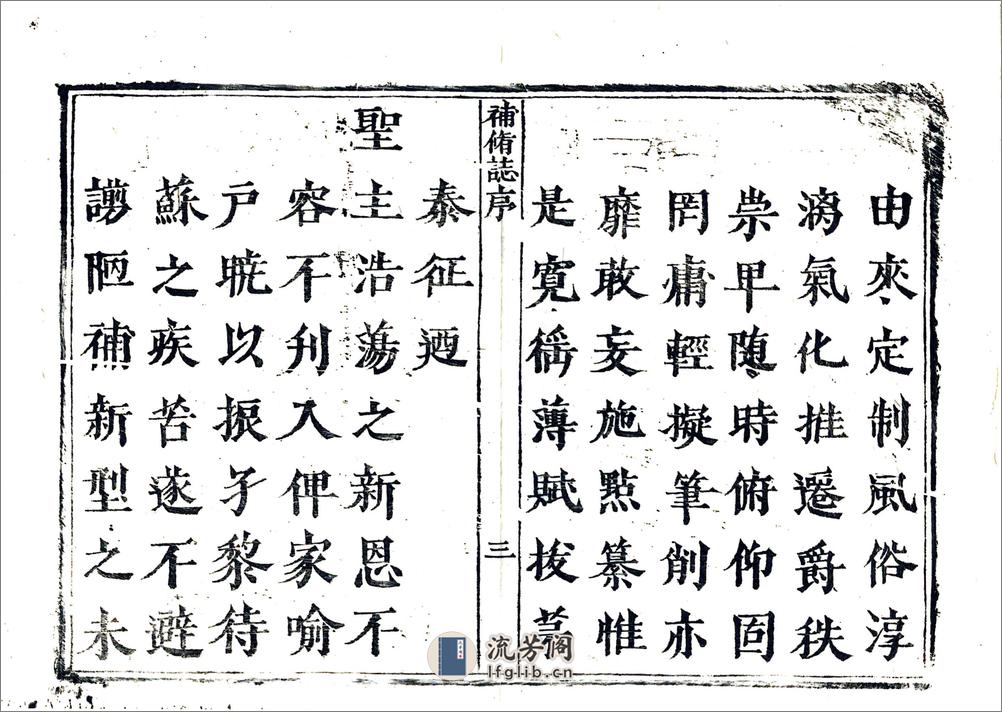 由來定制風俗淳
漓氣化推遷爵秩
崇卑随時俯仰固
罔庸輕擬筆削亦
靡敢妄施點纂惟
是寛徭薄賦拔茅
補脩誌序
三
泰征迺
聖主浩蕩之新恩不
容不刋入俾家喻
戶曉以振孑黎待
蘇之疾苦遂不避
謭陋補新型之未
流芳阁
lfglib.cn